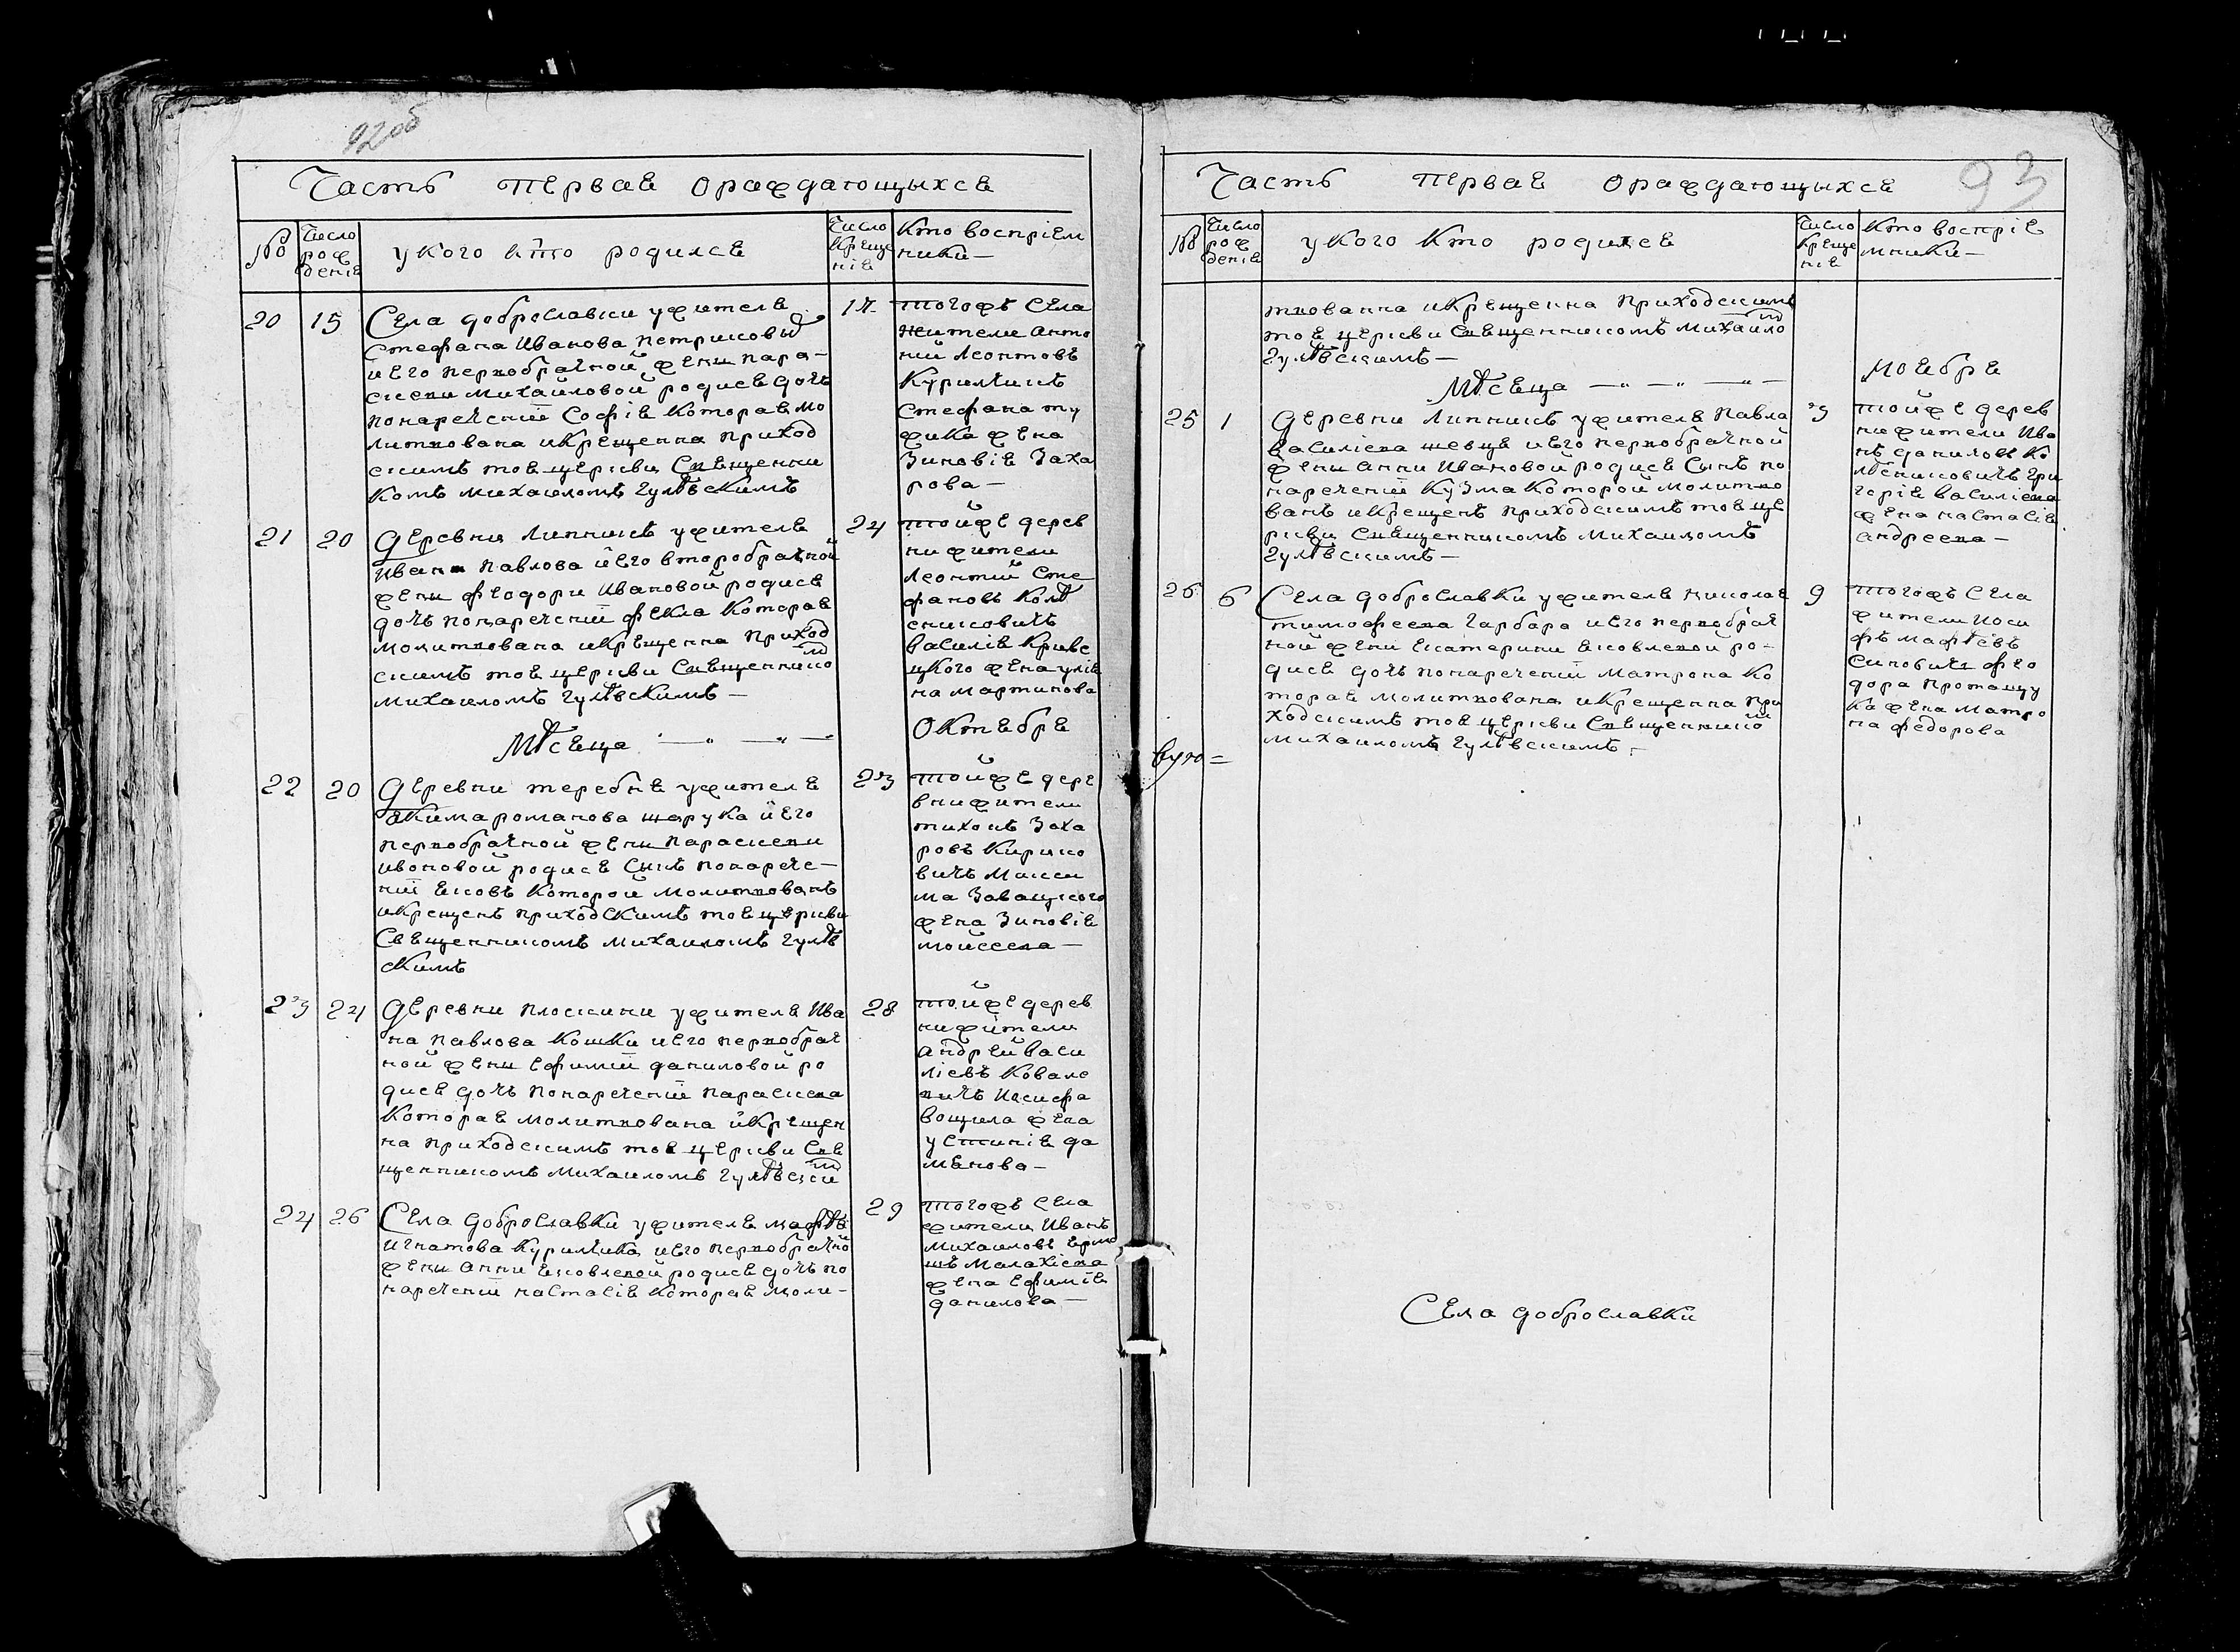 92 об
Часть первая ораждающыхсе
№
Число рож денія
у кого кто родилсе
Число креще нія
Кто воспріем ники —
20 15 Села доброславки ужителя 17
Стефана Иванова петрыковы
и его первобрачной жени пара-
скеви михайловой родисе дочъ
понаречєній Софія которая мо
литвована икрещенна приход
скимъ тоя церкви Священни
комъ михаиломъ гулѣвскимъ
тогожъ села
жители анто
ній леонтовъ
Куриліишъ
Стефана ту
жика жена
Зиновія Заха
рова —
21 20 Деревни липникъ ужителя 24
Ивана павлова и его второбрачной
жени феодори Ивановой родисе
дочъ понаречєній фекла которая
молитвована икрещенна приход
скимъ тоя церкви Священнико
михаиломъ гулѣвскимъ —
тойже дерев
ни жители
леонтий Сте
фановъ Колѣ
сниковичъ
василія Кривс
цкого жена улія
на мартинова
Мѣсеца — „ — „ —
Октебре
22 20 Деревни теребня ужителя 23
Якима романова шарука и его
первобрачной жени параскеви
ивоновой родисе Синъ понарече-
ній Яковъ Которой молитвованъ
икрещенъ приходскимъ тоя церкви
Священникомъ михаиломъ гулѣв
скимъ
тойже дере
вни жители
тихонъ Заха
ровъ Кирико
вичъ макси
ма Завацкого
жена Зиновія
моисеева —
23 24 Деревни плоскини ужителя Ива 28
на павлова кошки и его первобрач
ной жени ефимій даниловой ро
дисе дочъ понаречєній параскева
Которая молитвована икрещен
на приходскимъ тоя церкви Свя
щенникомъ михаиломъ гулѣвски
тойже дерев
ни жители
андрей васи
ліевъ Ковале
вичъ Иосифа
вощила жена
устинія да
мянова —
24 26 Села доброславки ужителя мафтѣя 29
Игнатова Куриліика и его первобрачно
жени анни Яковлевой родисе дочъ по
наречєній настасія которая моли-
тогожъ села
жители Иванъ
михаиловъ ермо
шъ малахіева
жена ефимія
данилова —
93
Часть первая ораждающыхсе
№
Число рож денія
у кого кто родилсе
Число креще нія
Кто воспріе мники —
твованна икрещенна приходскимъ
тоя церкви Священникомъ михаило
гулѣвскимъ —
Мѣсеца — „ — „ — „ —
ноебре
25 1 Деревни липникъ ужителя павла 3
василіева шевця и его первобрачной
жени анни Ивановой родисе Сынъ по
наречєній Кузма которой молитво
ванъ икрещенъ приходскимъ тоя це
ркви Священникомъ михаиломъ
гулѣвскимъ —
тойже дерев
ни жители Ива
нъ даниловъ Ко
лѣсниковичъ гри
горія василіева
жена настасія
андреева —
26 6 Села доброславки ужителя николая 9
тимофеева гарбара и его первобрач
ной жени екатерини Яковлевой ро-
дисе дочъ понаречєній матрона ко
торая молитвована икрещенна при
ходскимъ тоя церкви Священнико
михаиломъ гулѣвскимъ —
тогожъ села
жители Иоси
фъ мафтѣевъ
Синовичъ фео
дора протащу
ка жена матро
на федорова
Села доброславки